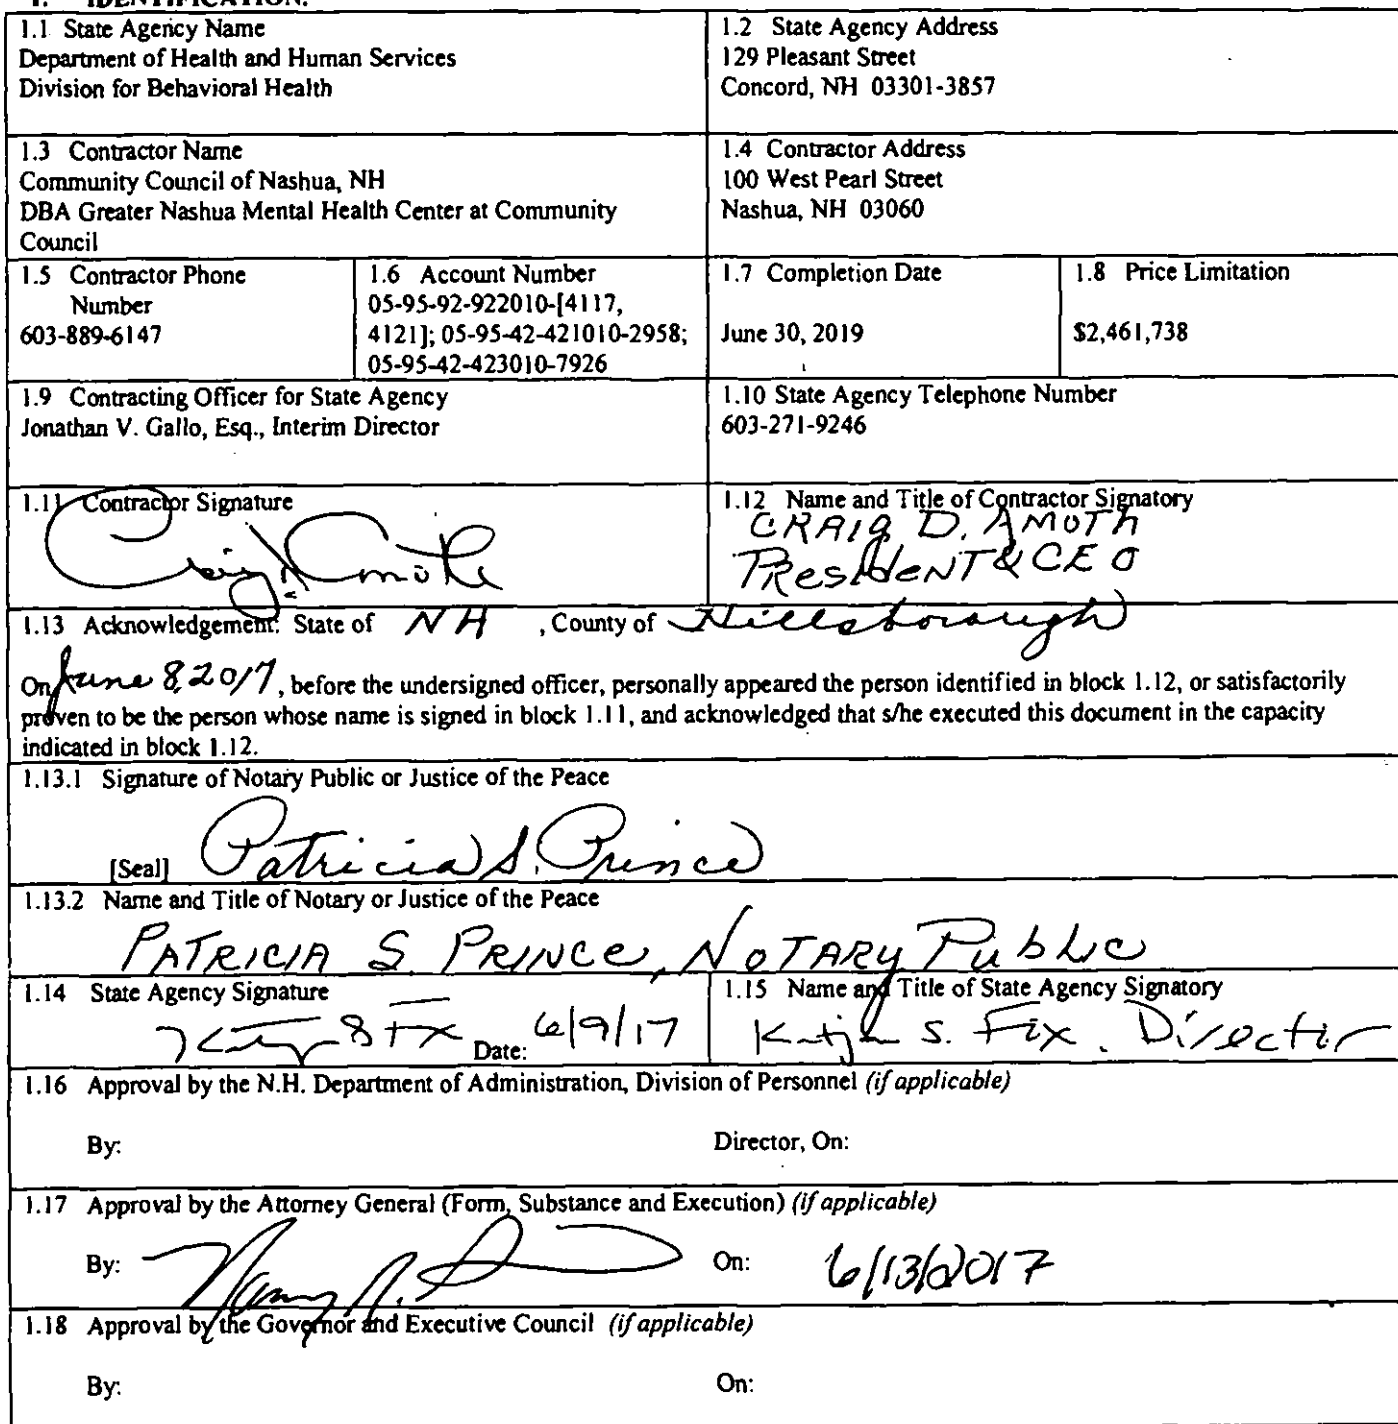 1. IDENTIFICATION.
1.1 State Agency Name
Department of Health and Human Services
Division for Behavioral Health
1.2 State Agency Address
129 Pleasant Street
Concord, NH 03301-3857
1.3 Contractor Name
Community Council of Nashua, NH
DBA Greater Nashua Mental Health Center at Community
Council
1.4 Contractor Address
100 West Pearl Street
Nashua, NH 03060
1.5 Contractor Phone
Number
603-889-6147
1.6 Account Number
05-95-92-922010-[4117,
4121]; 05-95-42-421010-2958;
05-95-42-423010-7926
1.7 Completion Date
June 30, 2019
1.8 Price Limitation
$2,461,738
1.9 Contracting Officer for State Agency
Jonathan V. Gallo, Esq., Interim Director
1.10 State Agency Telephone Number
603-271-9246
1.11 Contractor Signature
Craig D. Amoth
1.12 Name and Title of Contractor Signatory
CRAIG D. AMOTH
PRESIDENT & CEO
1.13 Acknowledgement: State of NH , County of Hillsborough
On June 8, 2017, before the undersigned officer, personally appeared the person identified in block 1.12, or satisfactorily
proven to be the person whose name is signed in block 1.11, and acknowledged that s/he executed this document in the capacity
indicated in block 1.12.
1.13.1 Signature of Notary Public or Justice of the Peace
[Seal] Patricia S. Prince
1.13.2 Name and Title of Notary or Justice of the Peace
PATRICIA S. PRINCE, NOTARY Public
1.14 State Agency Signature
Date: 6/9/17
1.15 Name and Title of State Agency Signatory
S. Fox, Director
1.16 Approval by the N.H. Department of Administration, Division of Personnel (if applicable)
By: Director, On:
1.17 Approval by the Attorney General (Form, Substance and Execution) (if applicable)
By: On: 6/13/2017
1.18 Approval by the Governor and Executive Council (if applicable)
By: On: